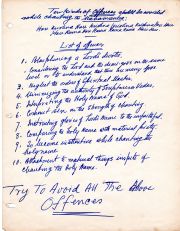 Ten kinds of Offences should be avoided
while chanting the Mahamantra.
Hare Krishna Hare Krishna Krishna Krishna Hare Hare
Hare Rama Hare Rama Rama Rama Hare Hare
List of offences
1. Blaspheming a Lord's devotee.
2. Considering the Lord and the demi gods on the same
level or
3. Neglect the orders of Spiritual Master.
4. Minimising the authority of Scriptures Vedas.
5. Interpreting the Holy Name of God.
6. Commit sin on the strength of chanting
7. Instructing glory of Lord's Name to the unfaithful.
8. Comparing the holy name with material piety.
9. To become inattentive while chanting the
holy name.
10. Attachment to material things inspite of
chanting the Holy name.
Try To Avoid All The above
Offences